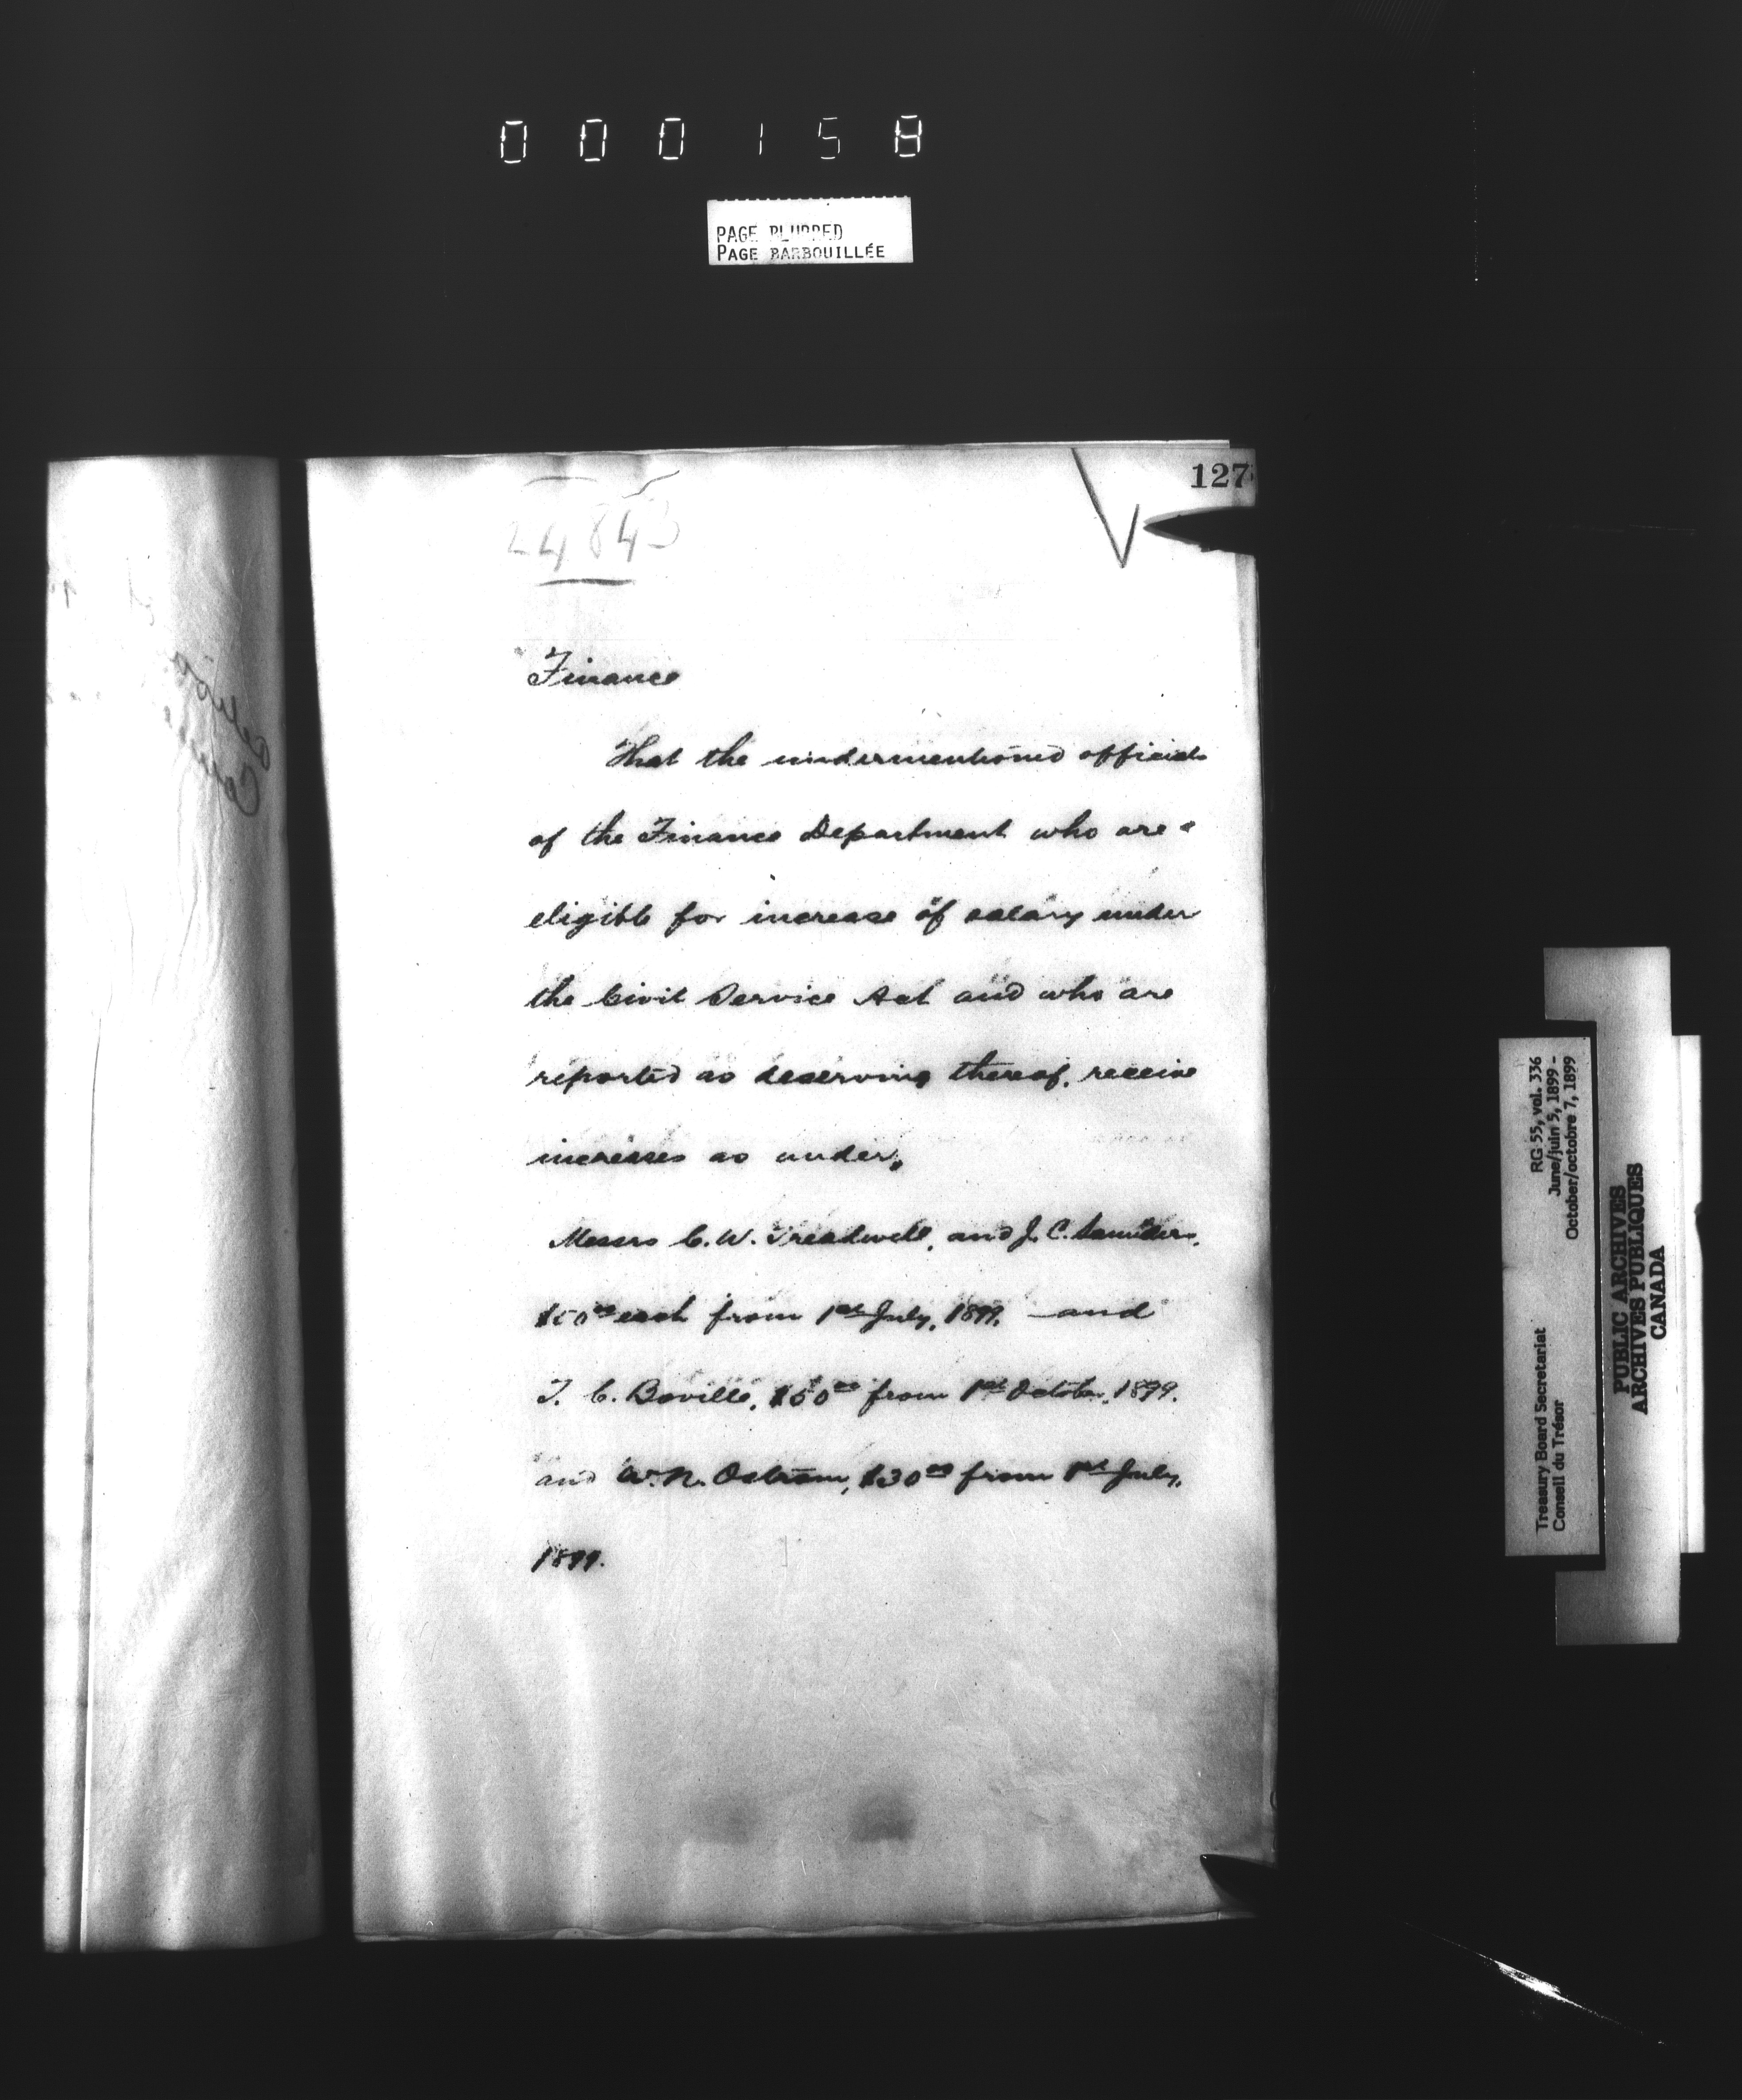 000158
PAGE BLURRED
PAGE BARBOUILLÉE
127
24843
Finance
That the undermentioned officials
of the Finance Department who are
eligible for increase of salary under
the Civil Service Act and who are
reported as deserving thereof, receive
increases as under,
Messrs C. W. Treadwell, and J. C. Saunders,
$50 00 each from 1st July, 1899, and
T. C. Boville, $50 00 from 1st October, 1899.
and W. N. Ostrom, $30 00 from 1st July,
1899.
RG 55, vol. 336
June/juin 5, 1899 -
October/octobre 7, 1899
Treasury Board Secretariat
Conseil du Trésor
PUBLIC ARCHIVES
ARCHIVES PUBLIQUES
CANADA